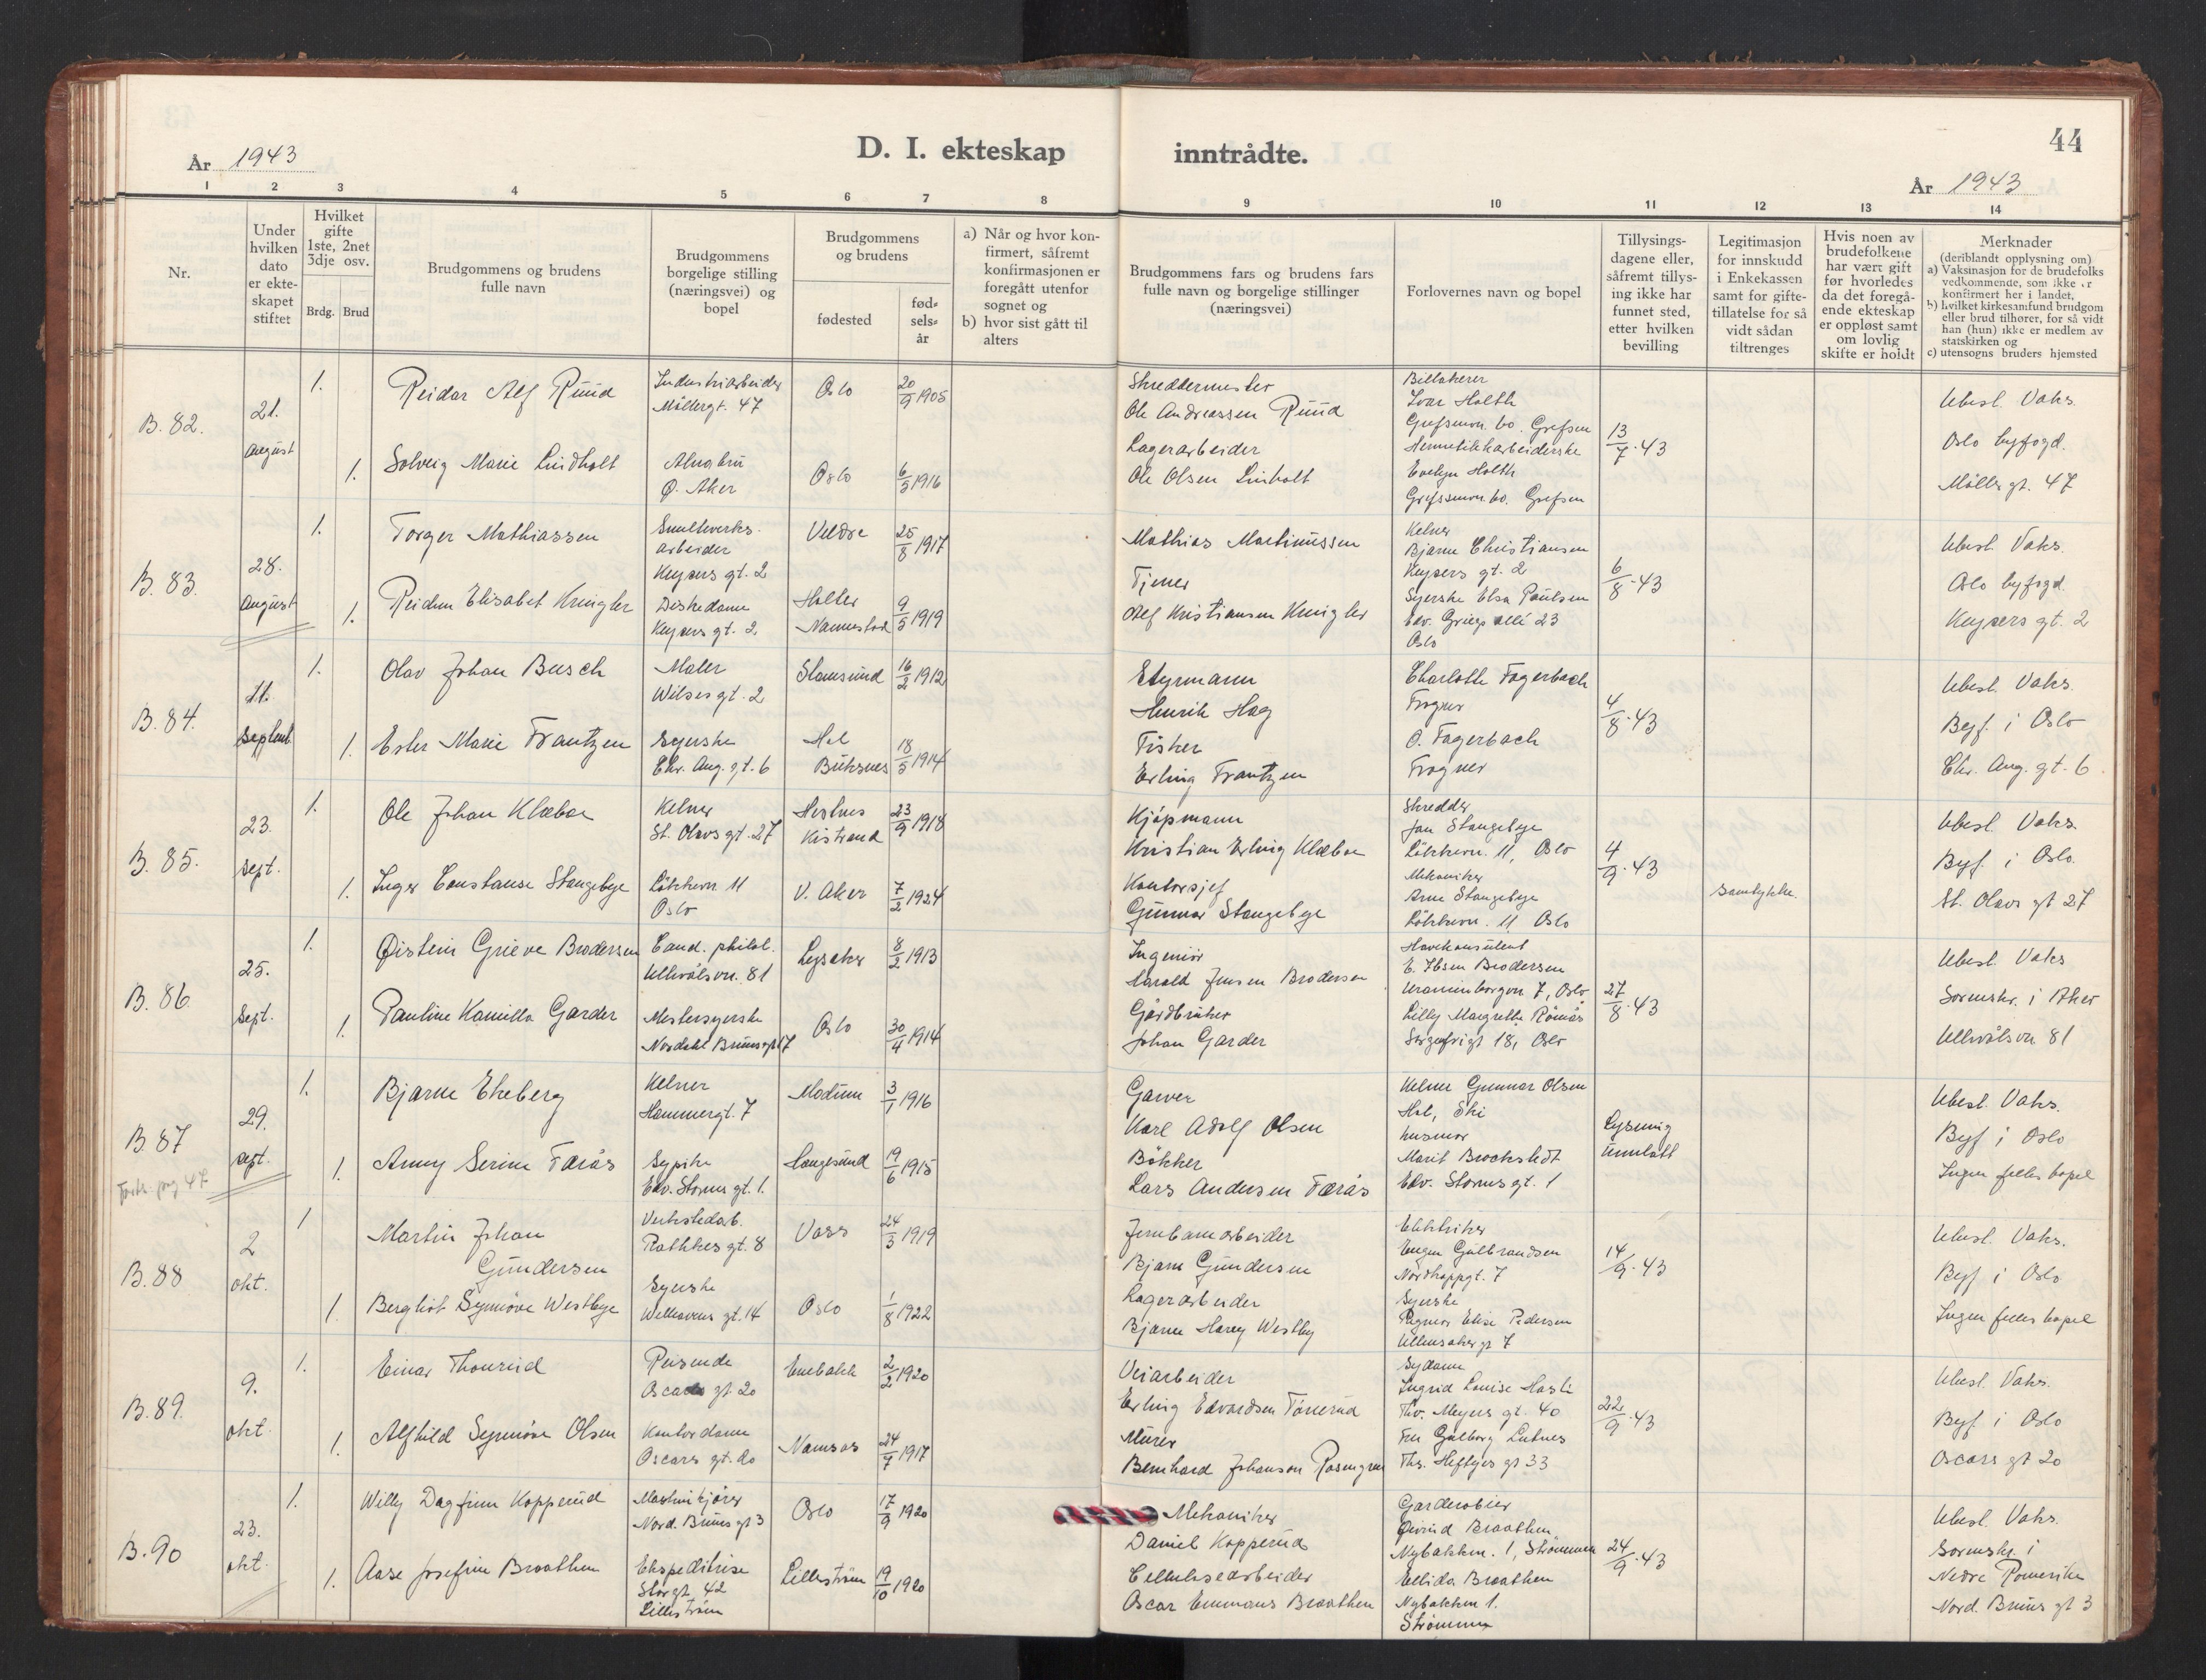 År 1943
D. I. ekteskap
inntrådte.
44
År 1943
1 2 3 4 5 6 7 8 9 10 11 12 13 14
Nr.
Under
hvilken
dato
er ekte-
skapet
stiftet
Hvilket
gifte
1ste, 2net
3dje osv.
Brdg. Brud
Brudgommens og brudens
fulle navn
Brudgommens
borgelige stilling
(næringsvei) og
bopel
Brudgommens
og brudens
fødested
fød-
sels-
år
a) Når og hvor kon-
firmert, såfremt
konfirmasjonen er
foregått utenfor
sognet og
b) hvor sist gått til
alters
Brudgommens fars og brudens fars
fulle navn og borgelige stillinger
(næringsvei)
Forlovernes navn og bopel
Tillysings-
dagene eller,
såfremt tillys-
ing ikke har
funnet sted,
etter hvilken
bevilling
Legitimasjon
for innskudd
i Enkekassen
samt for gifte-
tillatelse for så
vidt sådan
tiltrenges
Hvis noen av
brudefolkene
har vært gift
før hvorledes
da det foregå-
ende ekteskap
er oppløst samt
om lovlig
skifte er holdt
Merknader
(deriblandt opplysning om)
a) Vaksinasjon for de brudefolks
vedkommende, som ikke er
konfirmert her i landet,
b) hvilket kirkesamfund brudgom
eller brud tilhører, for så vidt
han (hun) ikke er medlem av
statskirken og
c) utensogns bruders hjemsted
B. 82.
21.
August
1.
Reidar Alf Ruud
Industriarbeider
Møllergt. 47
Oslo
20/9 1905
1.
Solveig Marie Lindholt
Alnabru
Ø. Aker
Oslo
6/5 1916
Skreddermester
Ole Andreassen Ruud
Lagerarbeider
Ole Olsen Linholt
Billakerer
Ivar Holth
Grefsenvn. 60. Grefsen
Hermetikkarbeiderske
Evelyn Holth
Grefsenvn. 60. Grefsen
13/7.43
Ubesl. Vaks.
Oslo byfogd.
Møllergt. 47
B. 83.
28.
August
1.
Torger Mathiassen
Smelteverks-
arbeider
Keysers gt. 2
Veldre
25/8 1917
1.
Reidun Elisabet Kringler
Diskedame
Keysers gt. 2.
Holter
Nannestad
9/5 1919
Mathias Martinussen
Tjener
Alf Kristiansen Kringler
Kelner
Bjarne Christiansen
Keysers gt. 2
Syerske Elsa Paulsen
Edv. Griegs allé 23
Oslo
6/8.43
Ubesl. Vaks.
Oslo byfogd.
Keysers gt. 2
B. 84.
11.
Septemb.
1.
Olav Johan Busch
Maler
Wilses gt. 2
Stamsund
16/2 1912
1.
Ester Marie Frantzen
Syerske
Chr. Aug. gt. 6
Hol
Buksnes
18/5 1914
Styrmann
Henrik Hag
Fisker
Erling Frantzen
Charlotte Fagerbach
Frogner
O. Fagerbach
Frogner
4/8.43
Ubesl. Vaks.
Byf. i Oslo
Chr. Aug. gt. 6.
B. 85.
23.
Sept.
1.
Ole Johan Klæboe
Kelner
St. Olavs gt. 27
Hestnes
Kistrand
23/9 1918
1.
Inger Constanse Stangebye
Løkkevn 11
Oslo
V. Aker
7/2 1924
Kjøpmann
Kristian Erling Klæboe
Kontorsjef
Gunnar Stangebye
Skredder
Jan Stangebye
Løkkevn. 11, Oslo
Mekaniker
Arne Stangebye
Løkkevn. 11 Oslo
4/9.43
Samtykke.
Ubesl. Vaks.
Byf. i Oslo.
St. Olavs gt 27
B. 86
25.
Sept.
1.
Øistein Grieve Brodersen
Cand. philol.
Ullevålsvn. 81
Lysaker
8/2 1913
1.
Pauline Kamilla Garder
Mestersyerske
Nordahl Bruns gt 17
Oslo
30/4 1914
Ingeniør
Harald Jensen Brodersen
Gårdbruker
Johan Garder
Havekonsulent
E. Ibsen Brodersen
Uranienborgvn 7, Oslo
Lilly Margrethe Romås
Sorgenfrigt 18, Oslo
27/8.43
Ubesl. Vaks
Sorenskr. i Aker
Ullevålsvn 81
B. 87
29.
sept.
1.
Bjarne Ekeberg
Kelner
Hammergt. 7
Modum
3/1 1916
1.
Anny Serine Farås
Sypike
Edv. Storms gt. 1.
Haugesund
19/6 1915
Garver
Karl Adolf Olsen
Bøkker
Lars Andersen Farås
Kelner Gunnar Olsen
Hol, Ski
husmor
Marit Brockstedt
Edv. Storms gt. 1
Lysning
unnlatt
Ubesl. Vaks.
Byf i Oslo
Ingen felles bopel
pag 47
B. 88
2
okt.
1
Martin Johan
Gundersen
Verkstedarb.
Rathkes gt. 8
Voss
24/3 1919
1.
Bergliot Synnøve Westbye
Syerske
Welhavens gt. 14
Oslo
1/8 1922
Jernbanearbeider
Bjarne Gundersen
Lagerarbeider
Bjarne Harry Westby
Elektriker
Eugen Gulbrandsen
Nordkappgt. 7
Syerske
Ragnar Elise Pedersen
Ullensakergt 7
14/9.43
Ubesl. Vaks.
Byf i Oslo
Ingen felles bopel
B. 89.
9.
okt.
1.
Einar Thonrud
Reisende
Oscars gt 20
Enebakk
2/2 1920
1.
Alfhild Synnøve Olsen
Kontordame
Oscars gt. do
Namsos
24/7 1917
Veiarbeider
Erling Edvardsen Tonerud
Murer
Bernhard Johanson Rosengren
Sydame
Ingrid Louise Hasli
Thv. Meyers gt. 40
Fru Gulborg Lutnes
Ths. Heftyes gt 33
22/9.43
Ubesl. Vaks.
Byf i Oslo
Oscars gt 20
B. 90
23.
okt.
1.
Willy Dagfinn Kopperud
Maskinkjører
Nord. Bruns gt 3
Oslo
17/9 1920
1.
Aase Josefine Braathen
Ekspeditrise
Storgt. 42
Lillestrøm
Lillestrøm
19/10 1920
Mekaniker
Daniel Kopperud
Cellulosearbeider
Oscar Emmanus Braathen
Garderobier
Øivind Braathen
Nybakken. 1, Strømmen
Ellida Braathen
Nybakken 1.
Strømmen
24/9.43
Ubesl. Vaks.
Sorenskr. i
Nedre Romerike
Nord. Bruns gt 3